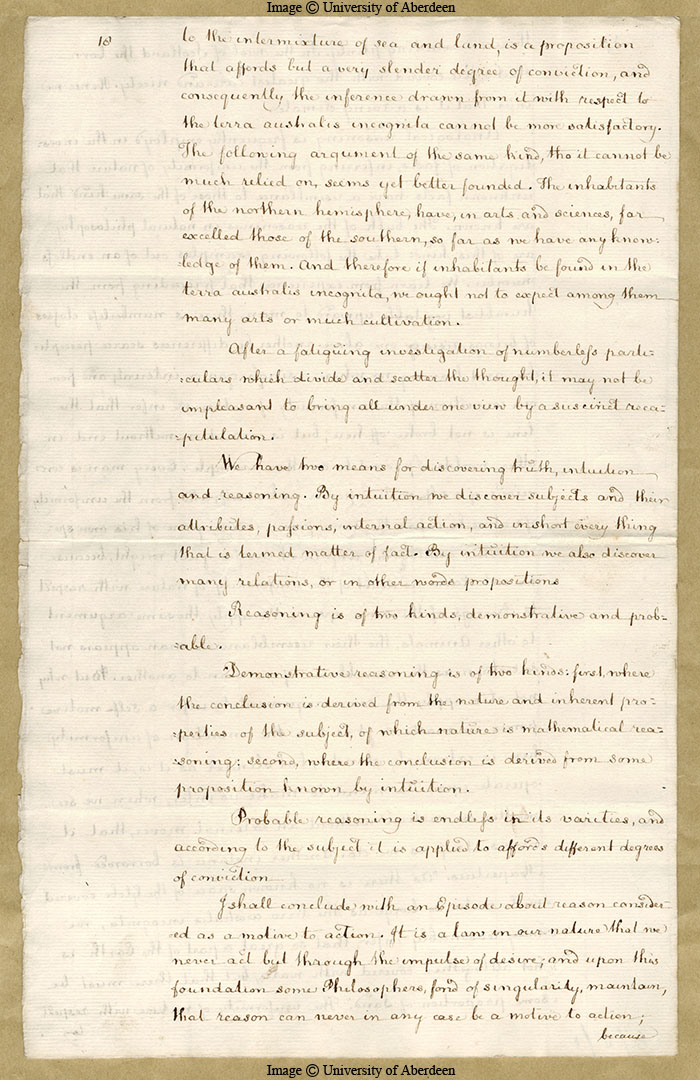 Image © University of Aberdeen
18
to the intermixture of sea and land, is a proposition
that affords but a very slender degree of conviction, and
consequently the inference drawn from it with respect to
the terra australis incognita cannot be more satisfactory.
The following argument of the same kind, tho it cannot be
much relied on, seems yet better founded. The inhabitants
of the northern hemisphere, have, in arts and sciences, far
excelled those of the southern, so far as we have any know-
:ledge of them. And therefore if inhabitants be found in the
terra australis incognita, we ought not to expect among them
many arts or much cultivation.
After a fatiguing investigation of numberless parti-
:culars which divide and scatter the thought, it may not be
unpleasant to bring all under one view by a succinct reca-
:pitulation.
We have two means for discovering truth, intuition
and reasoning. By intuition we discover subjects and their
attributes, passions, internal action, and in short every thing
that is termed matter of fact. By intuition we also discover
many relations, or in other words propositions
Reasoning is of two kinds, demonstrative and prob-
:able.
Demonstrative reasoning is of two kinds: first, where
the conclusion is derived from the nature and inherent pro-
:perties of the subject, of which nature is mathematical rea-
:soning; second, where the conclusion is derived from some
proposition known by intuition.
Probable reasoning is endless in its varities, and
according to the subject it is applied to affords different degrees
of conviction
I shall conclude with an Episode about reason consider-
ed as a motive to action. It is a law in our nature that we
never act but through the impulse of desire; and upon this
foundation some Philosophers, fond of singularity, maintain,
that reason can never in any case be a motive to action;
because
Image © University of Aberdeen